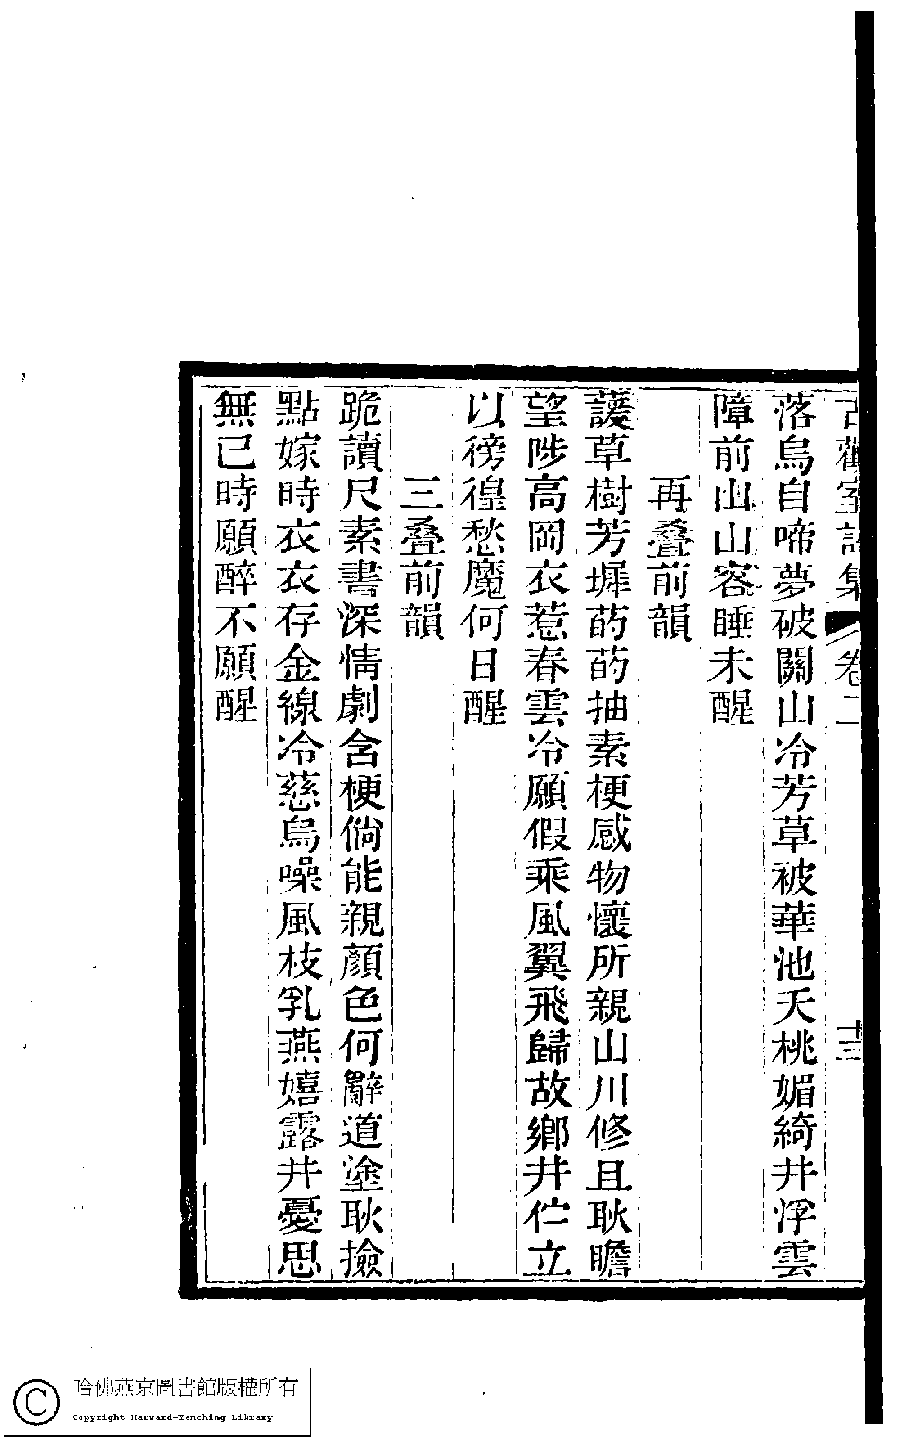 古觀室詩集 卷二 十三
落烏自啼夢破關山冷芳草被華池夭桃媚綺井浮雲
障前山山客睡未醒
再疊前韻
諼草樹芳墀菂菂抽素梗感物懷所親山川修且耿瞻
望陟高岡衣惹春雲冷願假乘風翼飛歸故鄉井伫立
以徬徨愁魔何日醒
三疊前韻
跪讀尺素書深情劇含梗倘能親顏色何辭道塗耿撿
點嫁時衣衣存金線冷慈烏噪風枝乳燕嬉露井憂思
無已時願醉不願醒
哈佛燕京圖書館版權所有
Copyright Harvard-Yenching Library